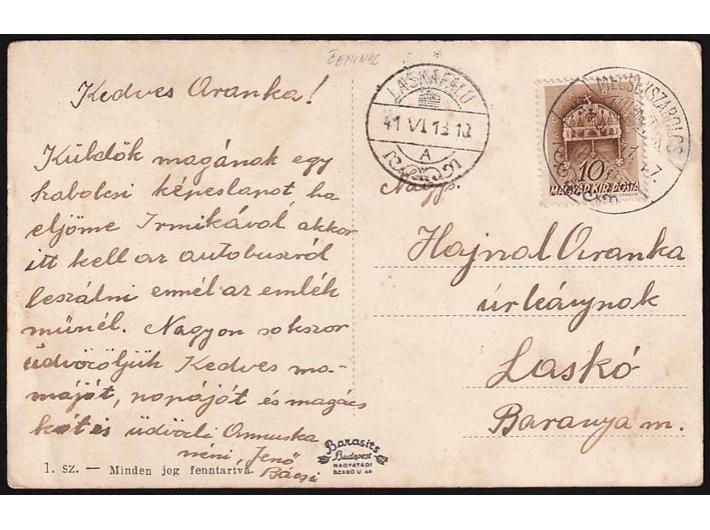 Kedves Aranka!
Küldök magának egy
kabolcsi képeslapot ha
eljöme Irmikával akkor
itt kell az autobuszról
leszálni ennél az emlék
münél. Nagyon sokszor
üdvözöljük Kedves ma-
máját, papáját és magács
kát is üdvözli Annuska
néni, Jenő
Bácsi
1. sz. — Minden jog fenntartva
Barasits
Budapest
NAGYATÁDI
SZABÓ U. 48
LASKAFALU
41 VI. 13. 10
A
MECSEKSZABOLCS
10 f
MAGYAR KIR. POSTA
Nagys.
Hajnal Aranka
úrleánynak
Laskó
Baranya m.